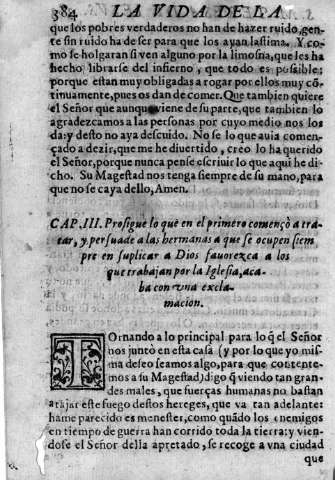 384 LA VIDA DE LA
que los pobres verdaderos no han de hazer ruido, gen-
te sin ruido ha de ser para que los ayan lastima. Y co-
mo se holgaran si ven alguno por la limosna, que les ha
hecho librarse del infierno, que todo es possible;
porque estan muy obligadas a rogar por ellos muy cõ-
tinuamente, pues os dan de comer. Que tambien quiere
el Señor que aunque viene de su parte, que tambien lo
agradezcamos a las personas por cuyo medio nos lo
da: y desto no aya descuido. No se lo que auia comen-
çado a dezir, que me he diuertido, creo lo ha querido
el Señor, porque nunca pense escriuir lo que aqui he di-
cho. Su Magestad nos tenga siempre de su mano, para
que no se caya dello, Amen.
CAP. III. Prosigue lo que en el primero començò a tra-
tar, y persuade a las hermanas a que se ocupen siem
pre en suplicar a Dios fauorezca a los
que trabajan por la Iglesia, aca-
ba con vna excla-
macion.
TOrnando a lo principal para lo q̃ el Señor
nos juntò en esta casa (y por lo que yo mis-
ma deseo seamos algo, para que contente-
mos a su Magestad) digo q̃ viendo tan gran-
des males, que fuerças humanas no bastan
a tajar este fuego destos hereges, que va tan adelante:
hame parecido es menester, como quãdo los enemigos
en tiempo de guerra han corrido toda la tierra: y vien-
dose el Señor della apretado, se recoge a vna ciudad
que